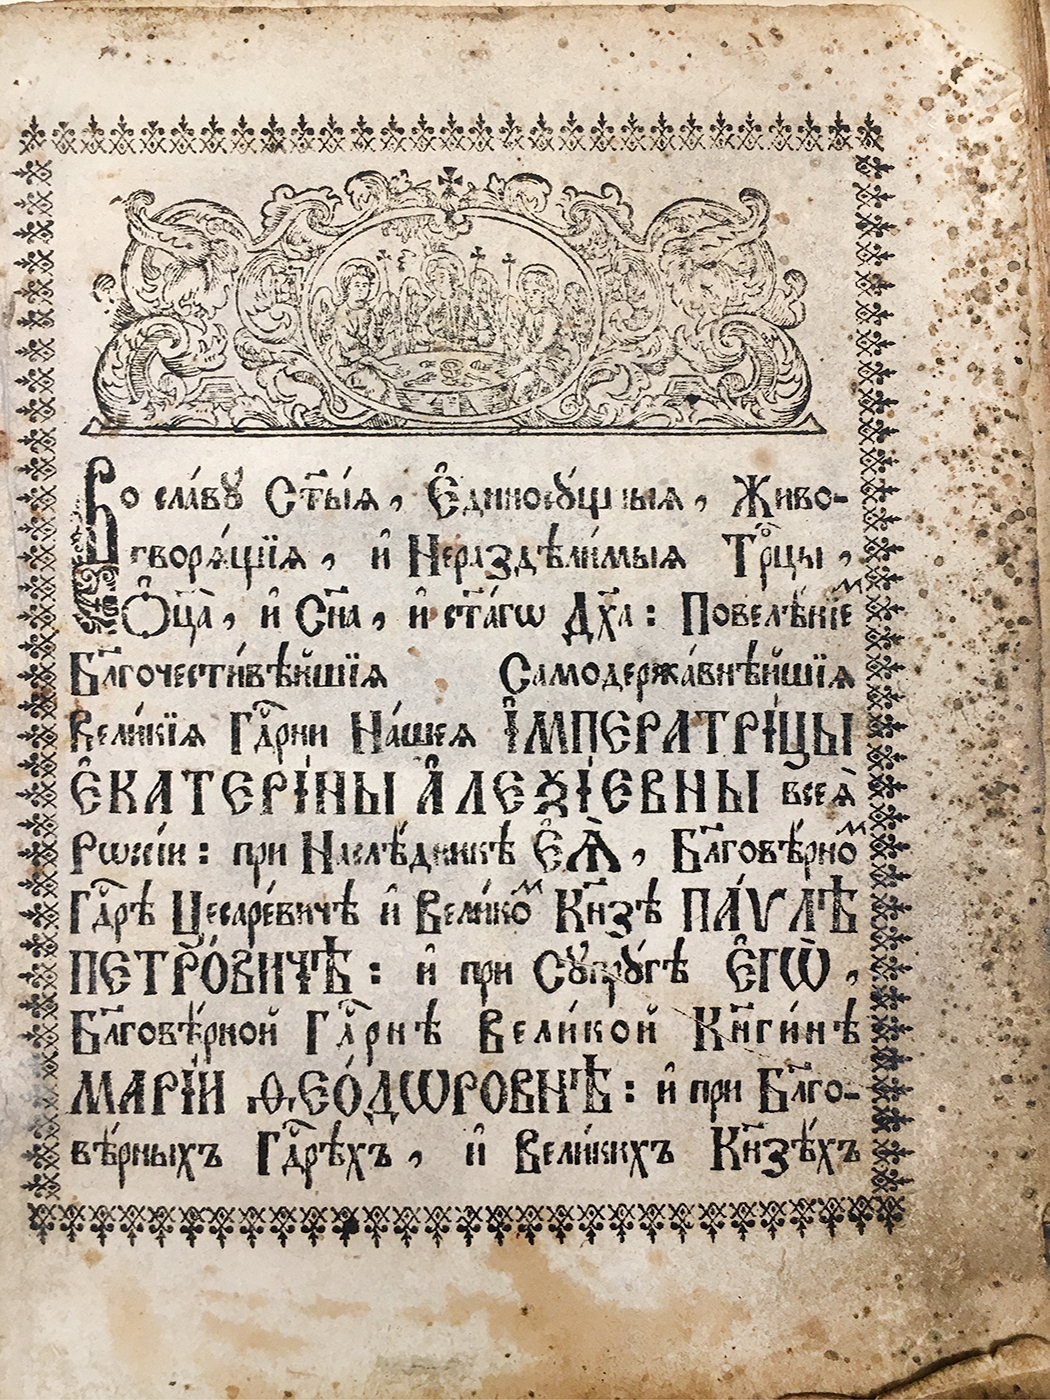 Во сла́вꙋ Ст҃ы́ѧ, Є҆диносꙋ́щныѧ, Живо-
творѧ́щїѧ, и҆ Нераздѣли́мыѧ Трⷪ҇цы,
Ѻ҆ц҃а̀, и҆ Сн҃а, и҆ ст҃а́гѡ Дх҃а: Повелѣ́нїеⷨ
Бл҃гочести́вѣйшїѧ Самодержа́внѣйшїѧ
Вели́кїѧ Гдⷭ҇рни На́шеѧ І҆МПЕРАТРІ́ЦЫ
Є҆КАТЕРІ́НЫ А҆ЛЕѮІ́ЕВНЫ всеѧ̀
Рѡссі́и: при Наслѣ́дникѣ Є҆Ѧ̀, Бл҃говѣ́рноⷨ
Гдⷭ҇рѣ Цесаре́вичѣ и҆ Вели́коⷨ Кн҃зѣ ПА́ѴЛѢ
ПЕТРО́ВИЧѢ: и҆ при Сꙋпрꙋ́гѣ Є҆ГѠ̀,
Бл҃говѣ́рной Гдⷭ҇рнѣ Вели́кой Кн҃ги́нѣ
МАРІ́И Ѳ҆ЕО́ДѠРОВНѢ: и҆ при Бл҃го-
вѣ́рныхъ Гдⷭ҇рѣхъ, и҆ Вели́кихъ Кн҃зѣ́хъ